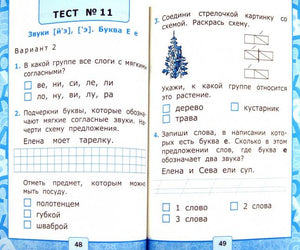 ТЕСТ № 11
Звуки [й'э], ['э]. Буква Е е
Вариант 2
1. В какой группе все слоги с мягкими
согласными?
ве, ни, си, ле, ли
ло, ву, ви, лу, ра
2. Подчеркни буквы, которые обозна-
чают мягкие согласные звуки. На-
черти схему предложения.
Елена моет тарелку.
Отметь предмет, которым можно
мыть посуду.
полотенцем
губкой
шваброй
48
3. Соедини стрелочкой картинку со
схемой. Раскрась схему.
Укажи, к какой группе относится
это растение.
дерево
кустарник
трава
4. Запиши слова, в написании кото-
рых есть буква е. Сколько в этом
предложении слов, где буква е
обозначает два звука?
Елена и Сева ели суп.
1 слово
2 слова
3 слова
49